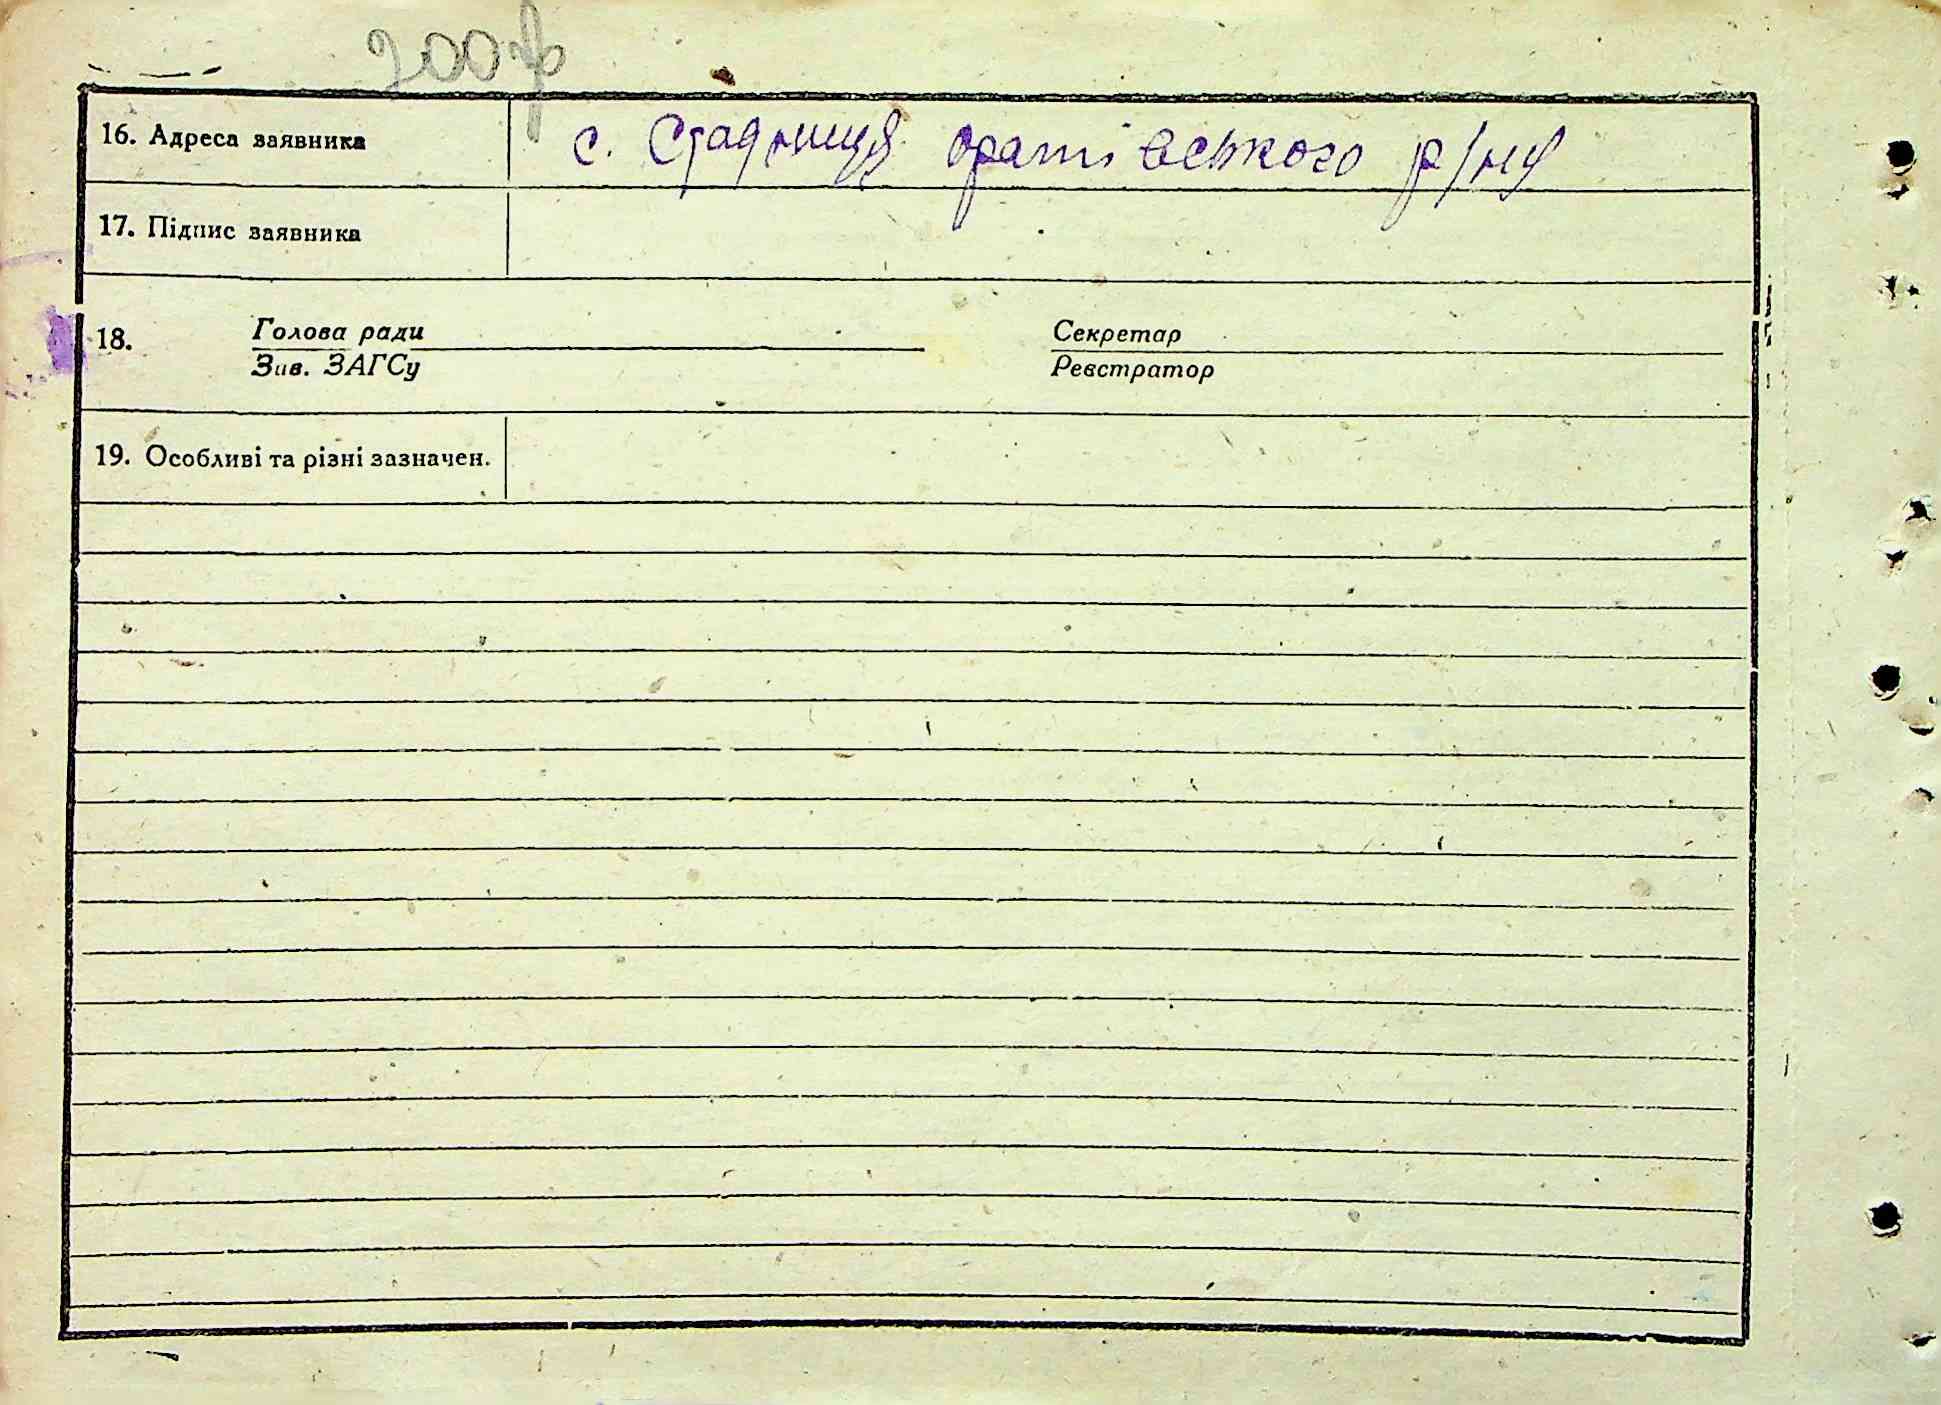 200 зв
16. Адреса заявника с. Стадниця оратівського р/ну
17. Підпис заявника
18. Голова ради Секретар
Зав. ЗАГСу Реєстратор
19. Особливі та різні зазначен.